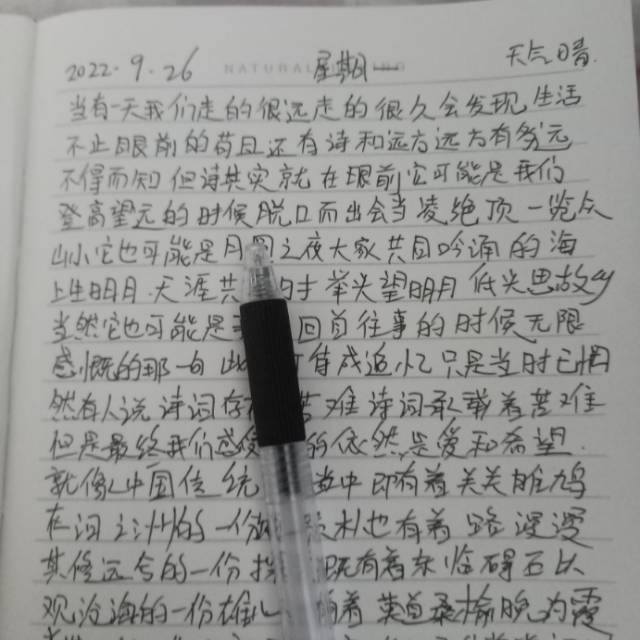 2022.9.26 NATURAL 星期 天气晴.
当有一天我们走的很远走的很久会发现生活
不止眼前的苟且还有诗和远方远方有多远
不得而知但诗其实就在眼前它可能是我们
登高望远的时候脱口而出会当凌绝顶一览众
山小它也可能是月圆之夜大家共同吟诵的海
上生明月.天涯共 时举头望明月低头思故乡
当然它也可能是 回首往事的时候无限
感慨的那一句此 可待成追忆只是当时已惘
然有人说诗词存 苦难诗词承载着苦难
但是最终我们感受 的依然是爱和希望.
就像中国传统 当中即有着关关雎鸠
在河之洲的一份 也有着路漫漫
其修远兮的一份 既有着东临碣石以
观沧海的一份雄心 有着莫道桑榆晚为霞